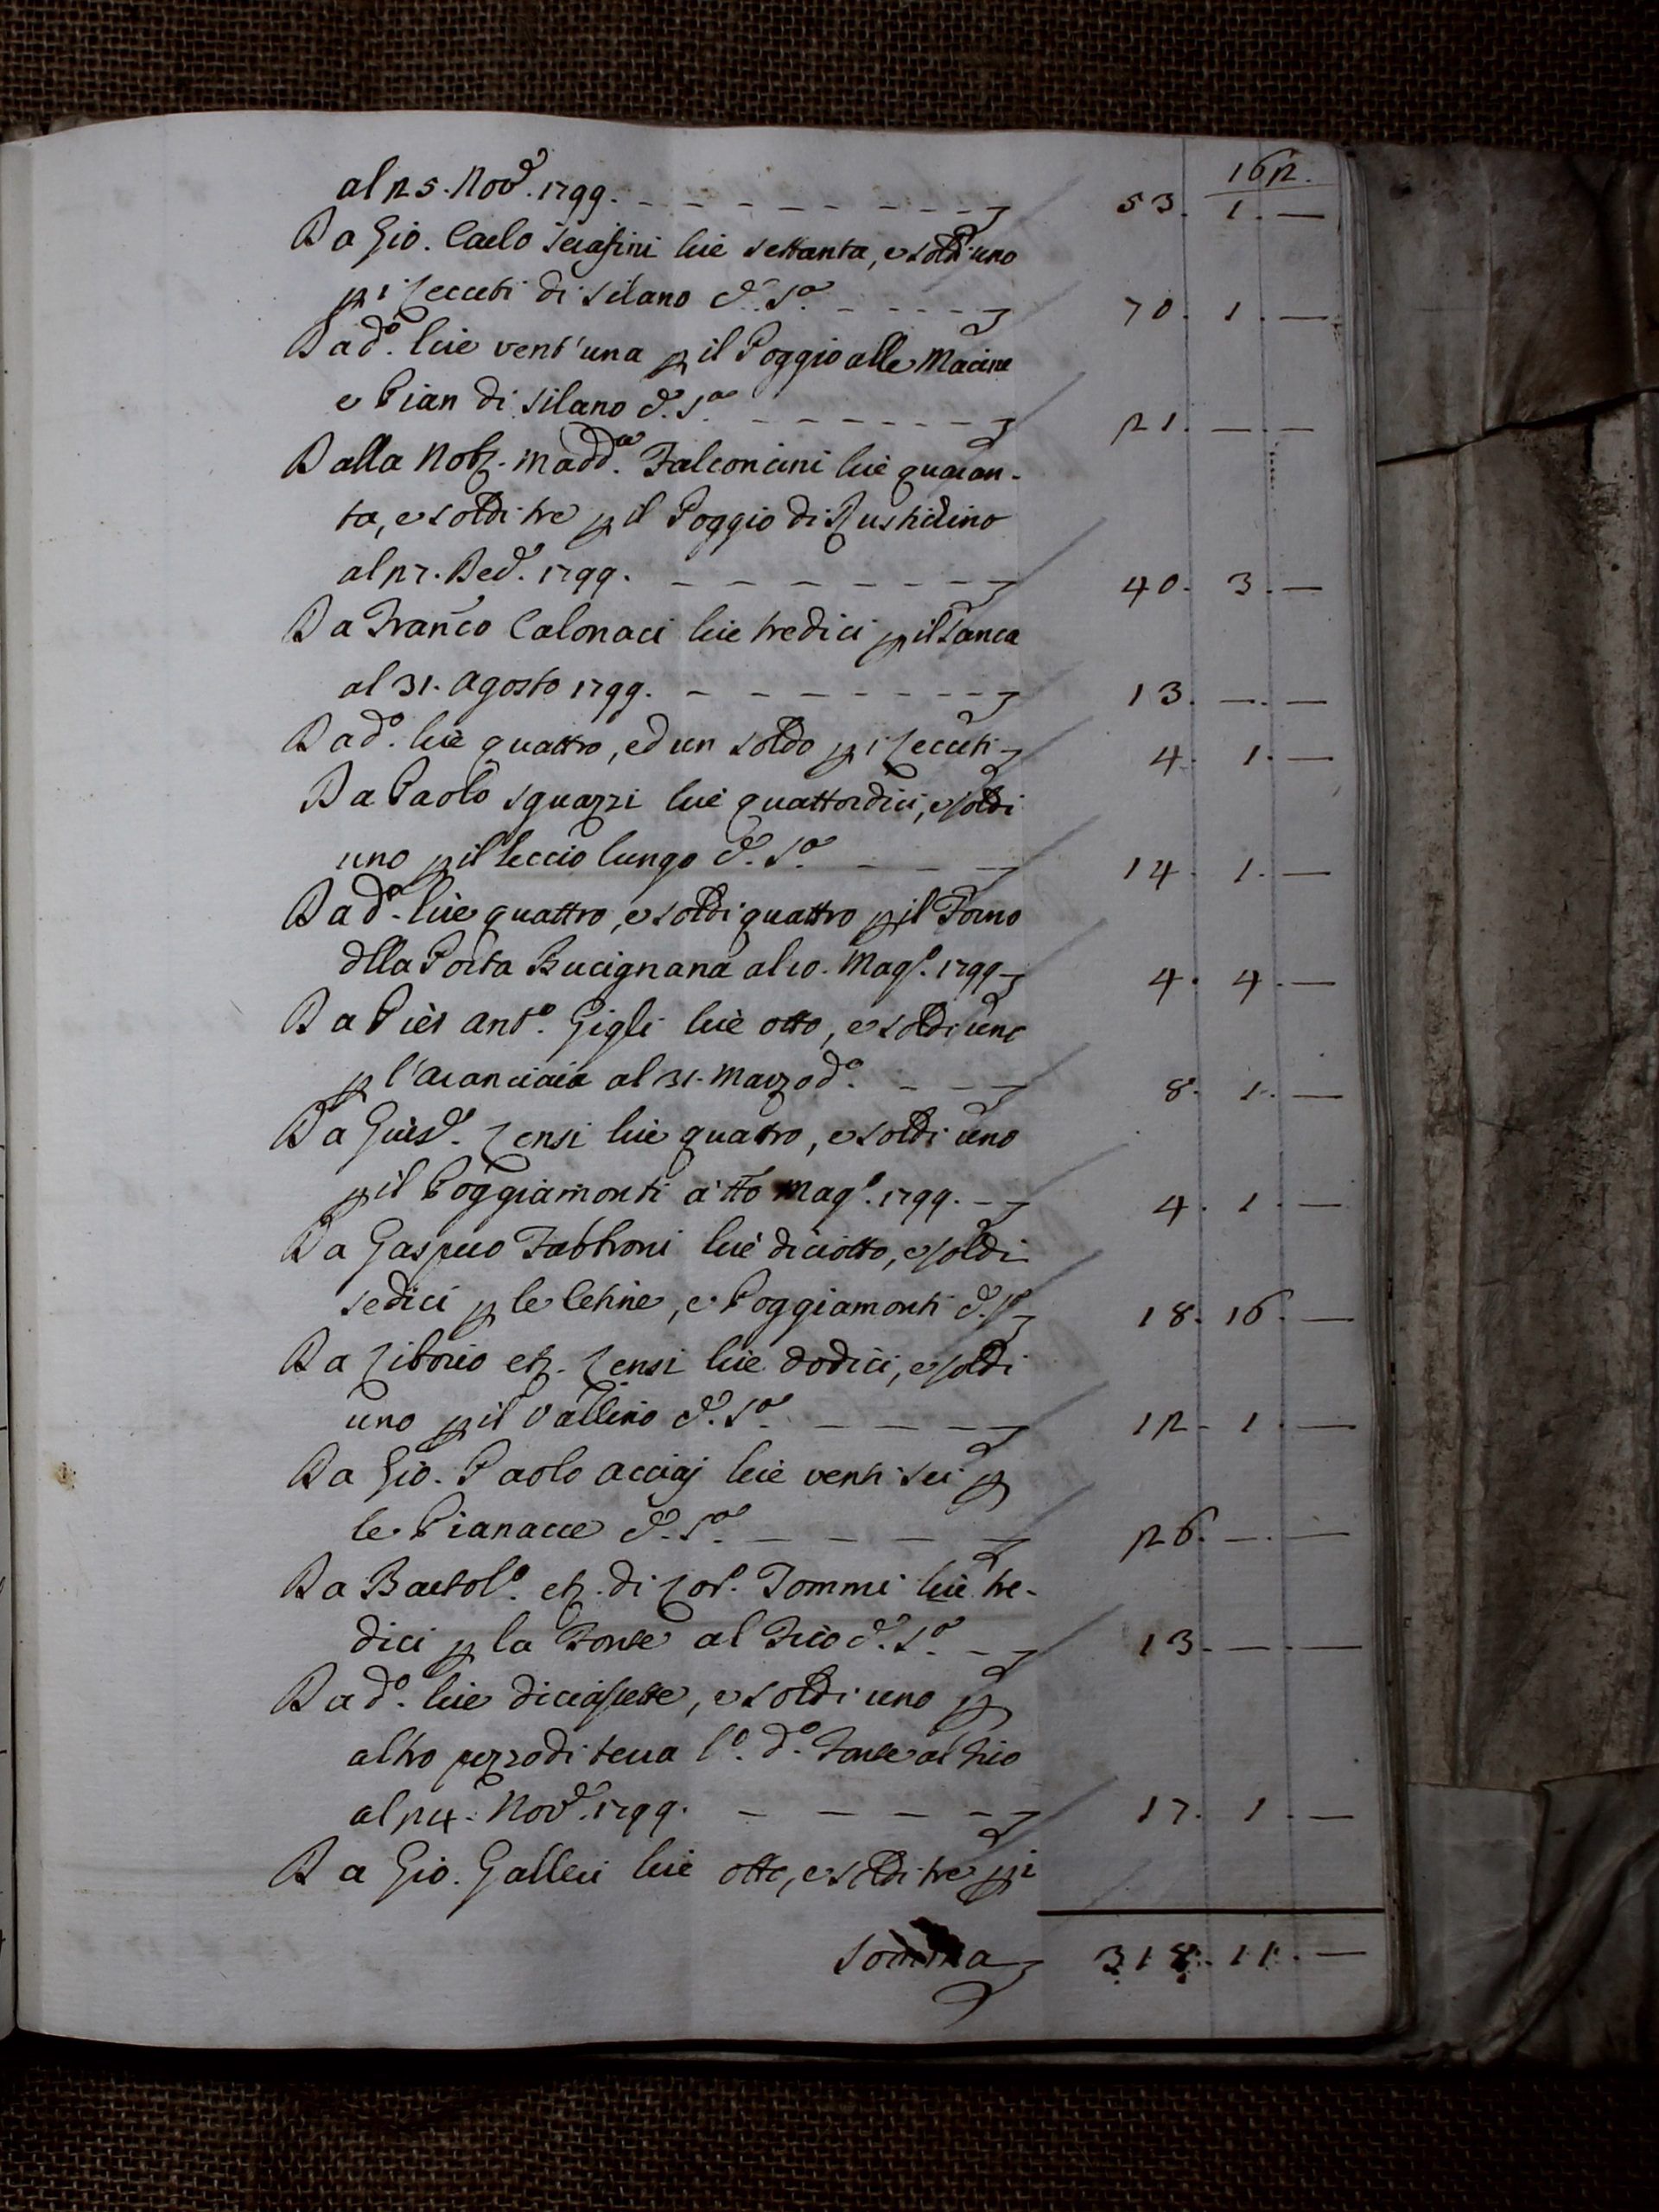 162.
al 25. Nov.e 1799. 53. 1. —
Da Gio. Carlo Serafini lire settanta, e soldi uno
p i Lecceti di Silano d.o S.o 70. 1. —
Da d.o lire vent'una p il Poggio alle Macine
e Pian di Silano d.o S.o 21. — —
Dalla Nob. Madd.a Falconcini lire quaran-
ta, e soldi tre p il Poggio di Rustichino
al 27. Dec.e 1799. 40. 3. —
Da Franco Calonaci lire tredici p il
al 31. Agosto 1799. 13. — —
Da d.o lire quattro, ed un soldo p i Lecceti 4. 1. —
Da Paolo Sguazzi lire quattordici, e soldi
uno p il Leccio lungo d.o S.o 14. 1. —
Da d.o lire quattro, e soldi quattro p il Forno
dlla Porta Bucignana al 10. Mag.o 1799 4. 4. —
Da Pier Ant.o Gigli lire otto, e soldi uno
p l'Aranciaia al 31. Marzo d.o 8. 1. —
Da Gius.e Lensi lire quattro, e soldi uno
p il Poggiamonti a tto Mag.o 1799. 4. 1. —
Da Gaspero Fabbroni lire diciotto, e soldi
sedici p le Cetine, e Poggiamonti d.o S.o 18. 16. —
Da Liborio et. Lensi lire dodici, e soldi
uno p il Vallino d.o S.o 12. 1. —
Da Gio. Paolo Acciaj lire ventisei p
le Pianacce d.o S.o 26. — —
Da Bartol.o et. di Lor.o Tommi lire tre-
dici p la Fonte al Frio d.o S.o 13. — —
Da d.o lire diciassette, e soldi uno p
altro pezzo di terra l.o d.o Fonte al Frio
al 24. Nov.e 1799. 17. 1. —
Da Gio. Galleri lire otto, e soldi tre p i
Somma 318. 11. —